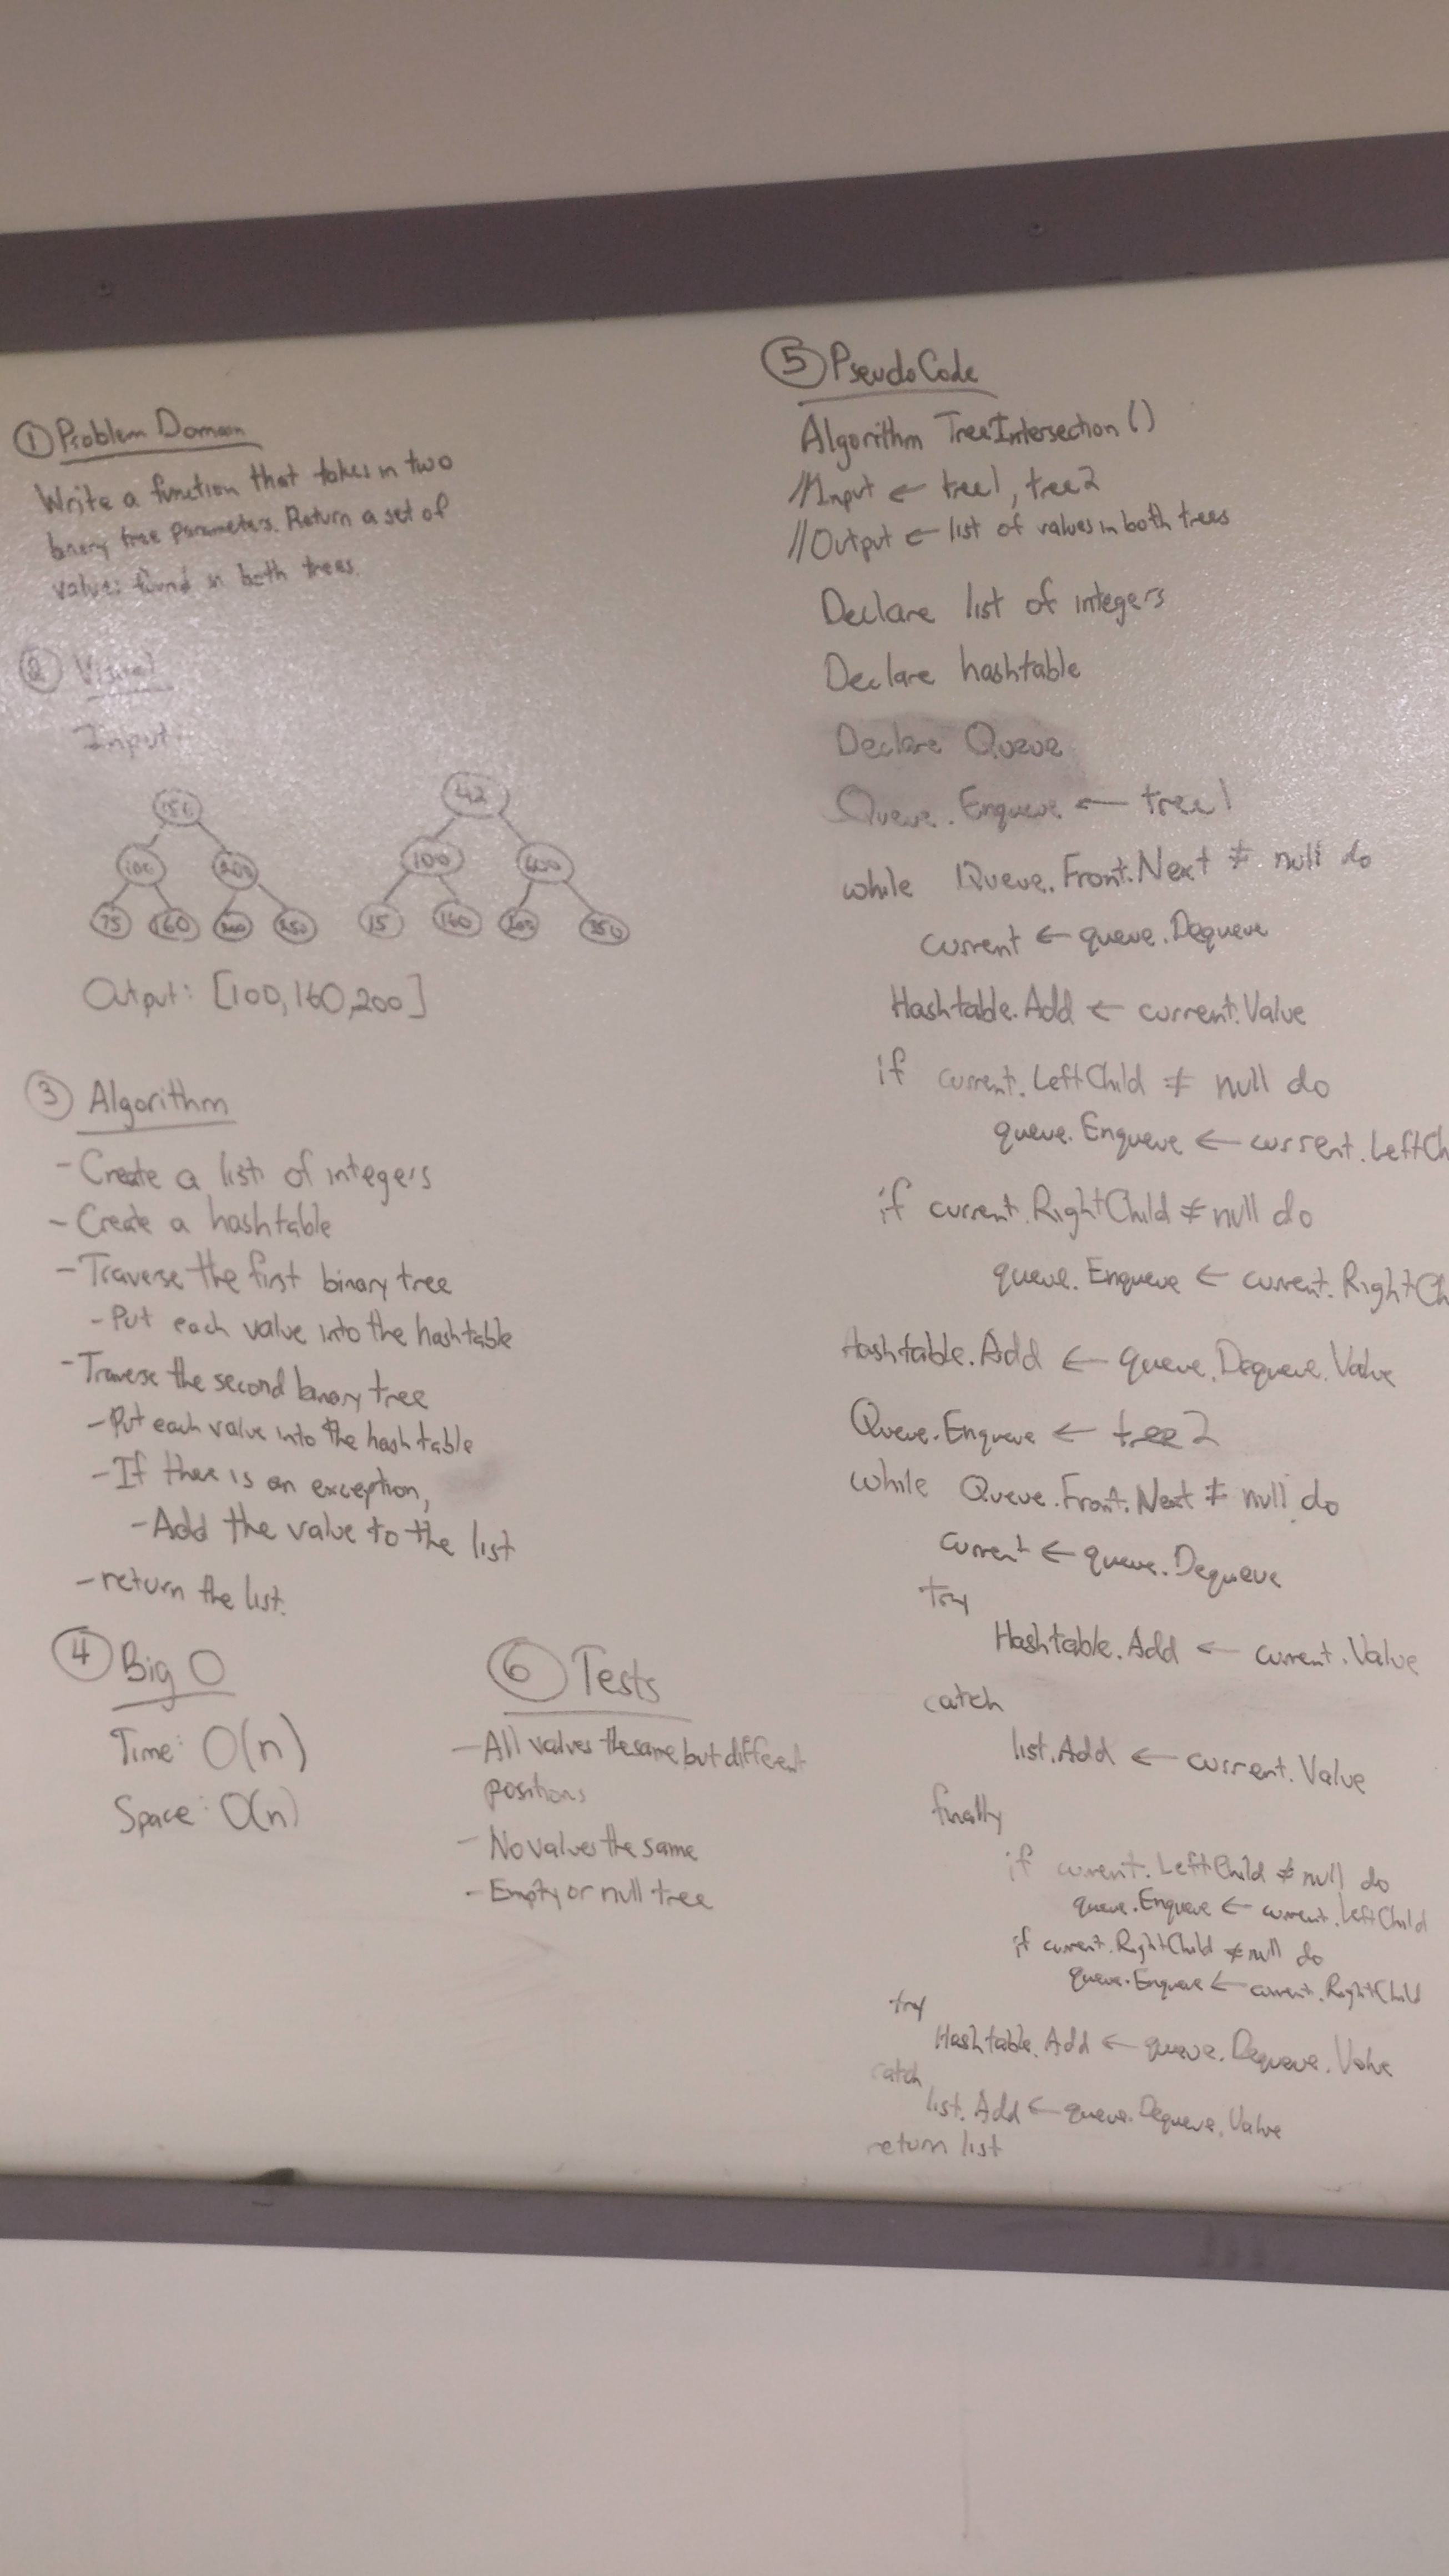 ① Problem Domain
Write a function that takes in two
binary tree parameters. Return a set of
values found in both trees.
② Visual
Input:
42
100 200 100
75 160 15 160
Output: [100, 160, 200]
③ Algorithm
- Create a list of integers
- Create a hashtable
- Traverse the first binary tree
- Put each value into the hashtable
- Traverse the second binary tree
- Put each value into the hashtable
- If there is an exception,
- Add the value to the list
- return the list.
④ Big O
Time: O(n)
Space: O(n)
⑥ Tests
- All values the same, but different
positions
- No values the same
- Empty or null tree
⑤ PseudoCode
Algorithm TreeIntersection()
//Input ← tree1, tree2
//Output ← list of values in both trees
Declare list of integers
Declare hashtable
Declare Queue
Queue.Enqueue ← tree1
while Queue.Front.Next ≠ null do
current ← queue.Dequeue
Hashtable.Add ← current.Value
if current.LeftChild ≠ null do
queue.Enqueue ← current.LeftCh
if current.RightChild ≠ null do
queue.Enqueue ← current.RightCh
Hashtable.Add ← queue.Dequeue.Value
Queue.Enqueue ← tree2
while Queue.Front.Next ≠ null do
current ← queue.Dequeue
try
Hashtable.Add ← current.Value
catch
list.Add ← current.Value
finally
if current.LeftChild ≠ null do
queue.Enqueue ← current.LeftChild
if current.RightChild ≠ null do
queue.Enqueue ← current.RightChild
try
Hashtable.Add ← queue.Dequeue.Value
catch
list.Add ← queue.Dequeue.Value
return list